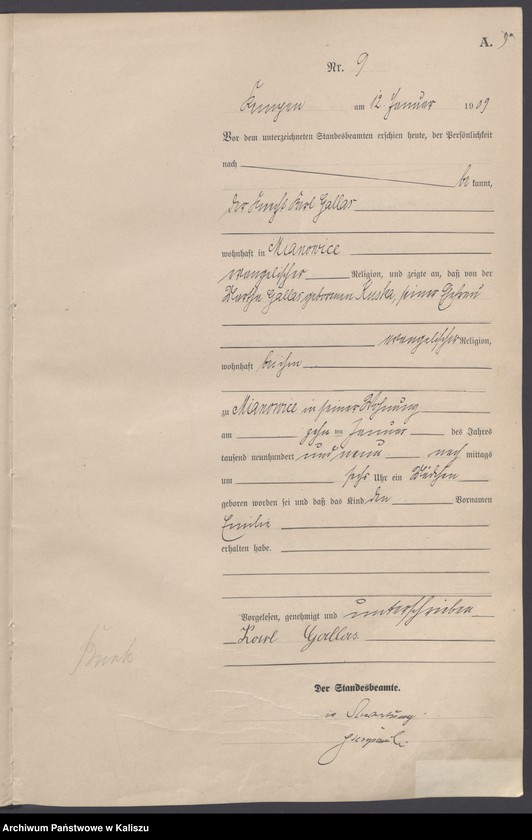 A. 9
Nr. 9
Kempen am 12 Januar 1909
Vor dem unterzeichneten Standesbeamten erschien heute, der Persönlichkeit
nach
be kannt,
der Knecht Karl Gallas
wohnhaft in Mianowice
evangelischer Religion, und zeigte an, daß von der
Gallas geborenen Kuska, seiner Ehefrau
evangelischer Religion,
wohnhaft bei ihm
zu Mianowice in seiner Wohnung
am zehn ten Januar des Jahres
tausend neunhundert und neun nach mittags
um sechs Uhr ein Mädchen
geboren worden sei und daß das Kind den Vornamen
Emilie
erhalten habe.
Vorgelesen, genehmigt und unterschrieben
Karl Gallas
Der Standesbeamte.
in Vertretung
Archiwum Państwowe w Kaliszu